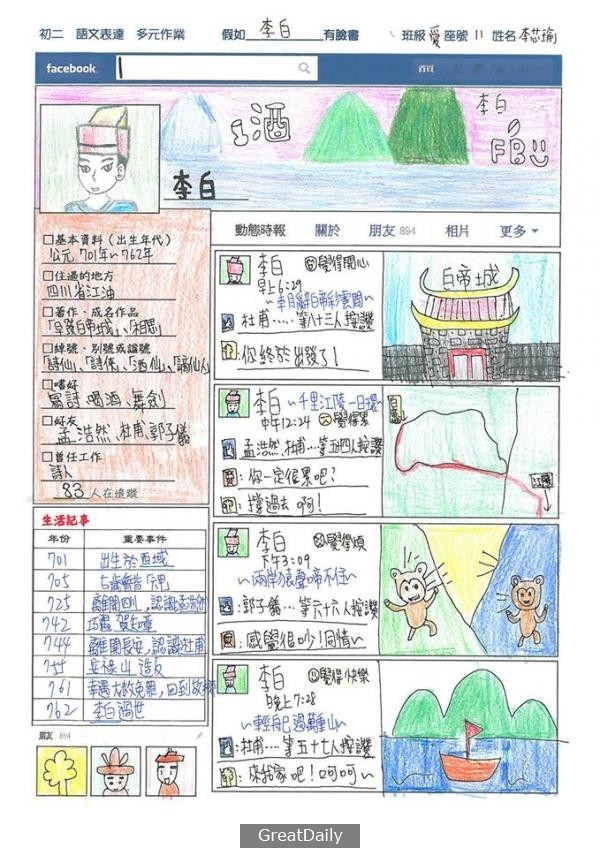 初二 語文表達 多元作業 假如 李白 有臉書 班級 愛 座號 11 姓名 李芯瑜
facebook
首頁
酒
李白
FB
李白
動態時報 關於 朋友 894 相片 更多
□基本資料（出生年代）
公元 701年~762年
□住過的地方
四川省江油
□著作、成名作品
□綽號、別號或諡號
「詩仙」、「詩俠」、「酒仙」、「謫仙人」
□嗜好
寫詩、喝酒、舞劍
□好友
孟浩然、杜甫、郭子儀
□曾任工作
詩人
83 人在追蹤
生活記事
年份 重要事件
701 出生於西域
705
725 離開四川,認識孟浩然
742 巧遇賀知章
744 離開長安,認識杜甫
755 安祿山造反
761 幸遇大赦免罪,回到故鄉
762 李白過世
朋友 894
李白 覺得開心
早上6:29
~朝辭白帝彩雲間~
杜甫.....等八十三人按讚
:你終於出發了!
白帝城
李白 ~千里江陵一日還~
中午12:24 覺得累
孟浩然、杜甫...等五四人按讚
:你一定很累吧?
:撐過去啊!
白帝城
江陵
李白 覺得煩
下午3:09
~兩岸猿聲啼不住~
:郭子儀...等六十六人按讚
:感覺很吵!同情~
李白 覺得快樂
晚上7:28
~輕舟已過萬重山~
:杜甫...等五十七人按讚
:來我家吧!呵呵~
GreatDaily